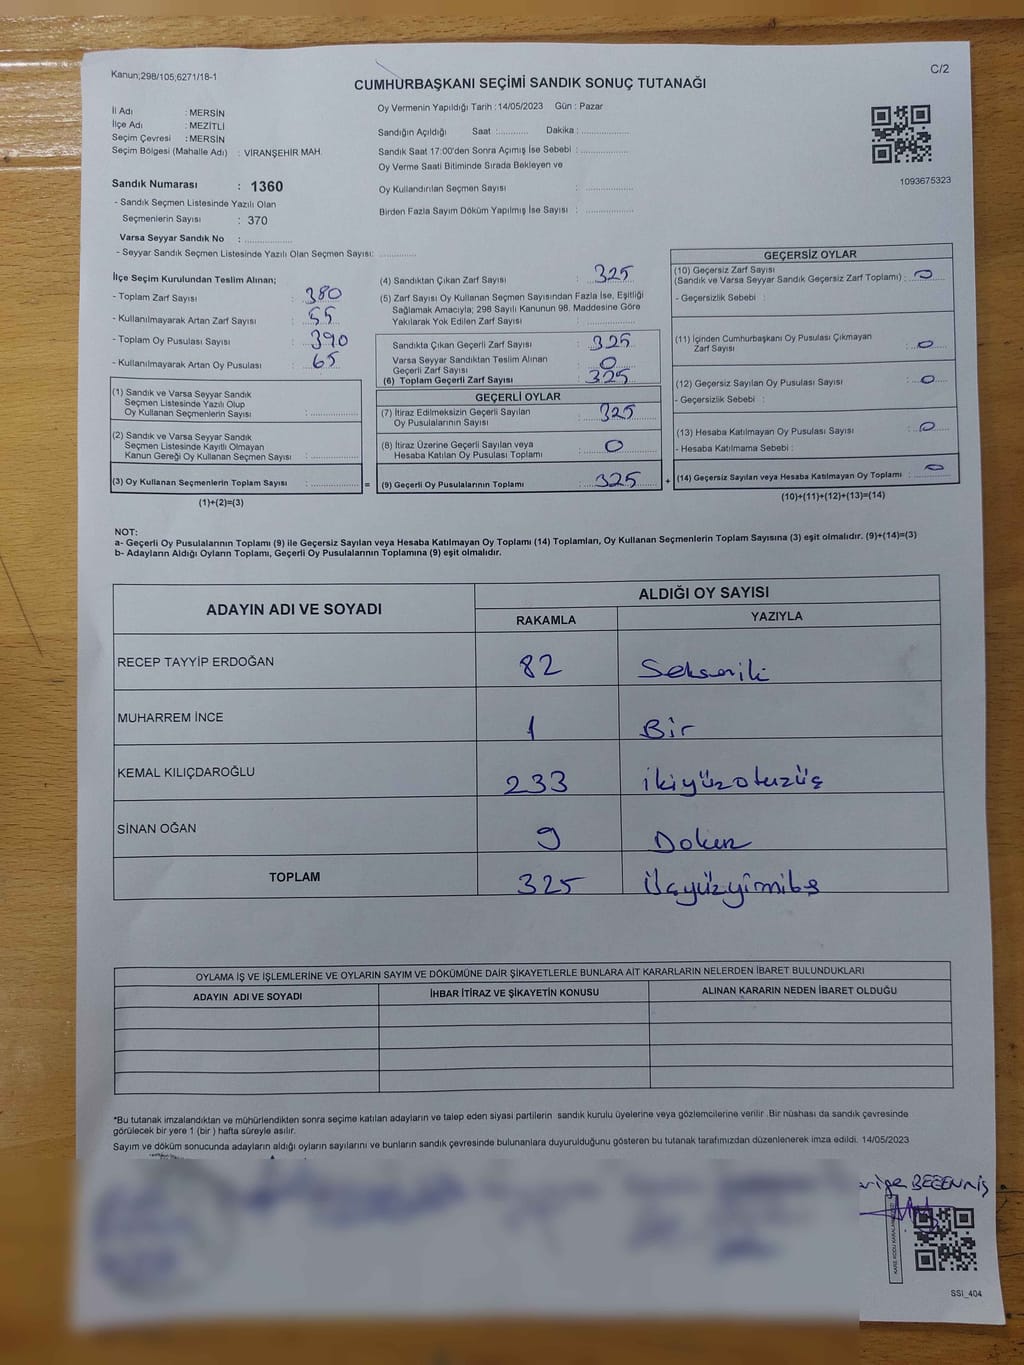 Kanun;298/105,6271/18-1
C/2
CUMHURBAŞKANI SEÇİMİ SANDIK SONUÇ TUTANAĞI
İl Adı : MERSİN
İlçe Adı : MEZİTLİ
Seçim Çevresi : MERSİN
Seçim Bölgesi (Mahalle Adı) : VİRANŞEHİR MAH.
Sandık Numarası : 1360
- Sandık Seçmen Listesinde Yazılı Olan
Seçmenlerin Sayısı : 370
Varsa Seyyar Sandık No : ..................
- Seyyar Sandık Seçmen Listesinde Yazılı Olan Seçmen Sayısı: ..............
Oy Vermenin Yapıldığı Tarih : 14/05/2023 Gün : Pazar
Sandığın Açıldığı Saat :........... Dakika : ..................
Sandık Saat 17:00'den Sonra Açımış İse Sebebi : ..................
Oy Verme Saati Bitiminde Sırada Bekleyen ve
Oy Kullandırılan Seçmen Sayısı : ..................
Birden Fazla Sayım Döküm Yapılmış İse Sayısı : ..................
1093675323
İlçe Seçim Kurulundan Teslim Alınan;
- Toplam Zarf Sayısı : 380
- Kullanılmayarak Artan Zarf Sayısı : 55
- Toplam Oy Pusulası Sayısı : 390
- Kullanılmayarak Artan Oy Pusulası : 65
(1) Sandık ve Varsa Seyyar Sandık
Seçmen Listesinde Yazılı Olup
Oy Kullanan Seçmenlerin Sayısı : ..................
(2) Sandık ve Varsa Seyyar Sandık
Seçmen Listesinde Kayıtlı Olmayan
Kanun Gereği Oy Kullanan Seçmen Sayısı : ..................
(3) Oy Kullanan Seçmenlerin Toplam Sayısı : .................. =
(1)+(2)=(3)
(4) Sandıktan Çıkan Zarf Sayısı : 325
(5) Zarf Sayısı Oy Kullanan Seçmen Sayısından Fazla İse, Eşitliği
Sağlamak Amacıyla; 298 Sayılı Kanunun 98. Maddesine Göre
Yakılarak Yok Edilen Zarf Sayısı : ..................
Sandıkta Çıkan Geçerli Zarf Sayısı : 325
Varsa Seyyar Sandıktan Teslim Alınan
Geçerli Zarf Sayısı : 0
(6) Toplam Geçerli Zarf Sayısı : 325
GEÇERLİ OYLAR
(7) İtiraz Edilmeksizin Geçerli Sayılan
Oy Pusulalarının Sayısı : 325
(8) İtiraz Üzerine Geçerli Sayılan veya
Hesaba Katılan Oy Pusulası Toplamı : 0
(9) Geçerli Oy Pusulalarının Toplamı : 325 +
GEÇERSİZ OYLAR
(10) Geçersiz Zarf Sayısı
(Sandık ve Varsa Seyyar Sandık Geçersiz Zarf Toplamı) : 0
- Geçersizlik Sebebi :
(11) İçinden Cumhurbaşkanı Oy Pusulası Çıkmayan
Zarf Sayısı : 0
(12) Geçersiz Sayılan Oy Pusulası Sayısı : 0
- Geçersizlik Sebebi :
(13) Hesaba Katılmayan Oy Pusulası Sayısı : 0
- Hesaba Katılmama Sebebi :
(14) Geçersiz Sayılan veya Hesaba Katılmayan Oy Toplamı : 0
(10)+(11)+(12)+(13)=(14)
NOT:
a- Geçerli Oy Pusulalarının Toplamı (9) ile Geçersiz Sayılan veya Hesaba Katılmayan Oy Toplamı (14) Toplamları, Oy Kullanan Seçmenlerin Toplam Sayısına (3) eşit olmalıdır. (9)+(14)=(3)
b- Adayların Aldığı Oyların Toplamı, Geçerli Oy Pusulalarının Toplamına (9) eşit olmalıdır.
ADAYIN ADI VE SOYADI
ALDIĞI OY SAYISI
RAKAMLA YAZIYLA
RECEP TAYYİP ERDOĞAN 82 Sekseniki
MUHARREM İNCE 1 Bir
KEMAL KILIÇDAROĞLU 233 ikiyüzotuzüç
SİNAN OĞAN 9 Dokuz
TOPLAM 325 Üçyüzyirmibeş
OYLAMA İŞ VE İŞLEMLERİNE VE OYLARIN SAYIM VE DÖKÜMÜNE DAİR ŞİKAYETLERLE BUNLARA AİT KARARLARIN NELERDEN İBARET BULUNDUKLARI
ADAYIN ADI VE SOYADI İHBAR İTİRAZ VE ŞİKAYETİN KONUSU ALINAN KARARIN NEDEN İBARET OLDUĞU
*Bu tutanak imzalandıktan ve mühürlendikten sonra seçime katılan adayların ve talep eden siyasi partilerin sandık kurulu üyelerine veya gözlemcilerine verilir .Bir nüshası da sandık çevresinde
görülecek bir yere 1 (bir ) hafta süreyle asılır.
Sayım ve döküm sonucunda adayların aldığı oyların sayılarını ve bunların sandık çevresinde bulunanlara duyurulduğunu gösteren bu tutanak tarafımızdan düzenlenerek imza edildi. 14/05/2023
SSI_404